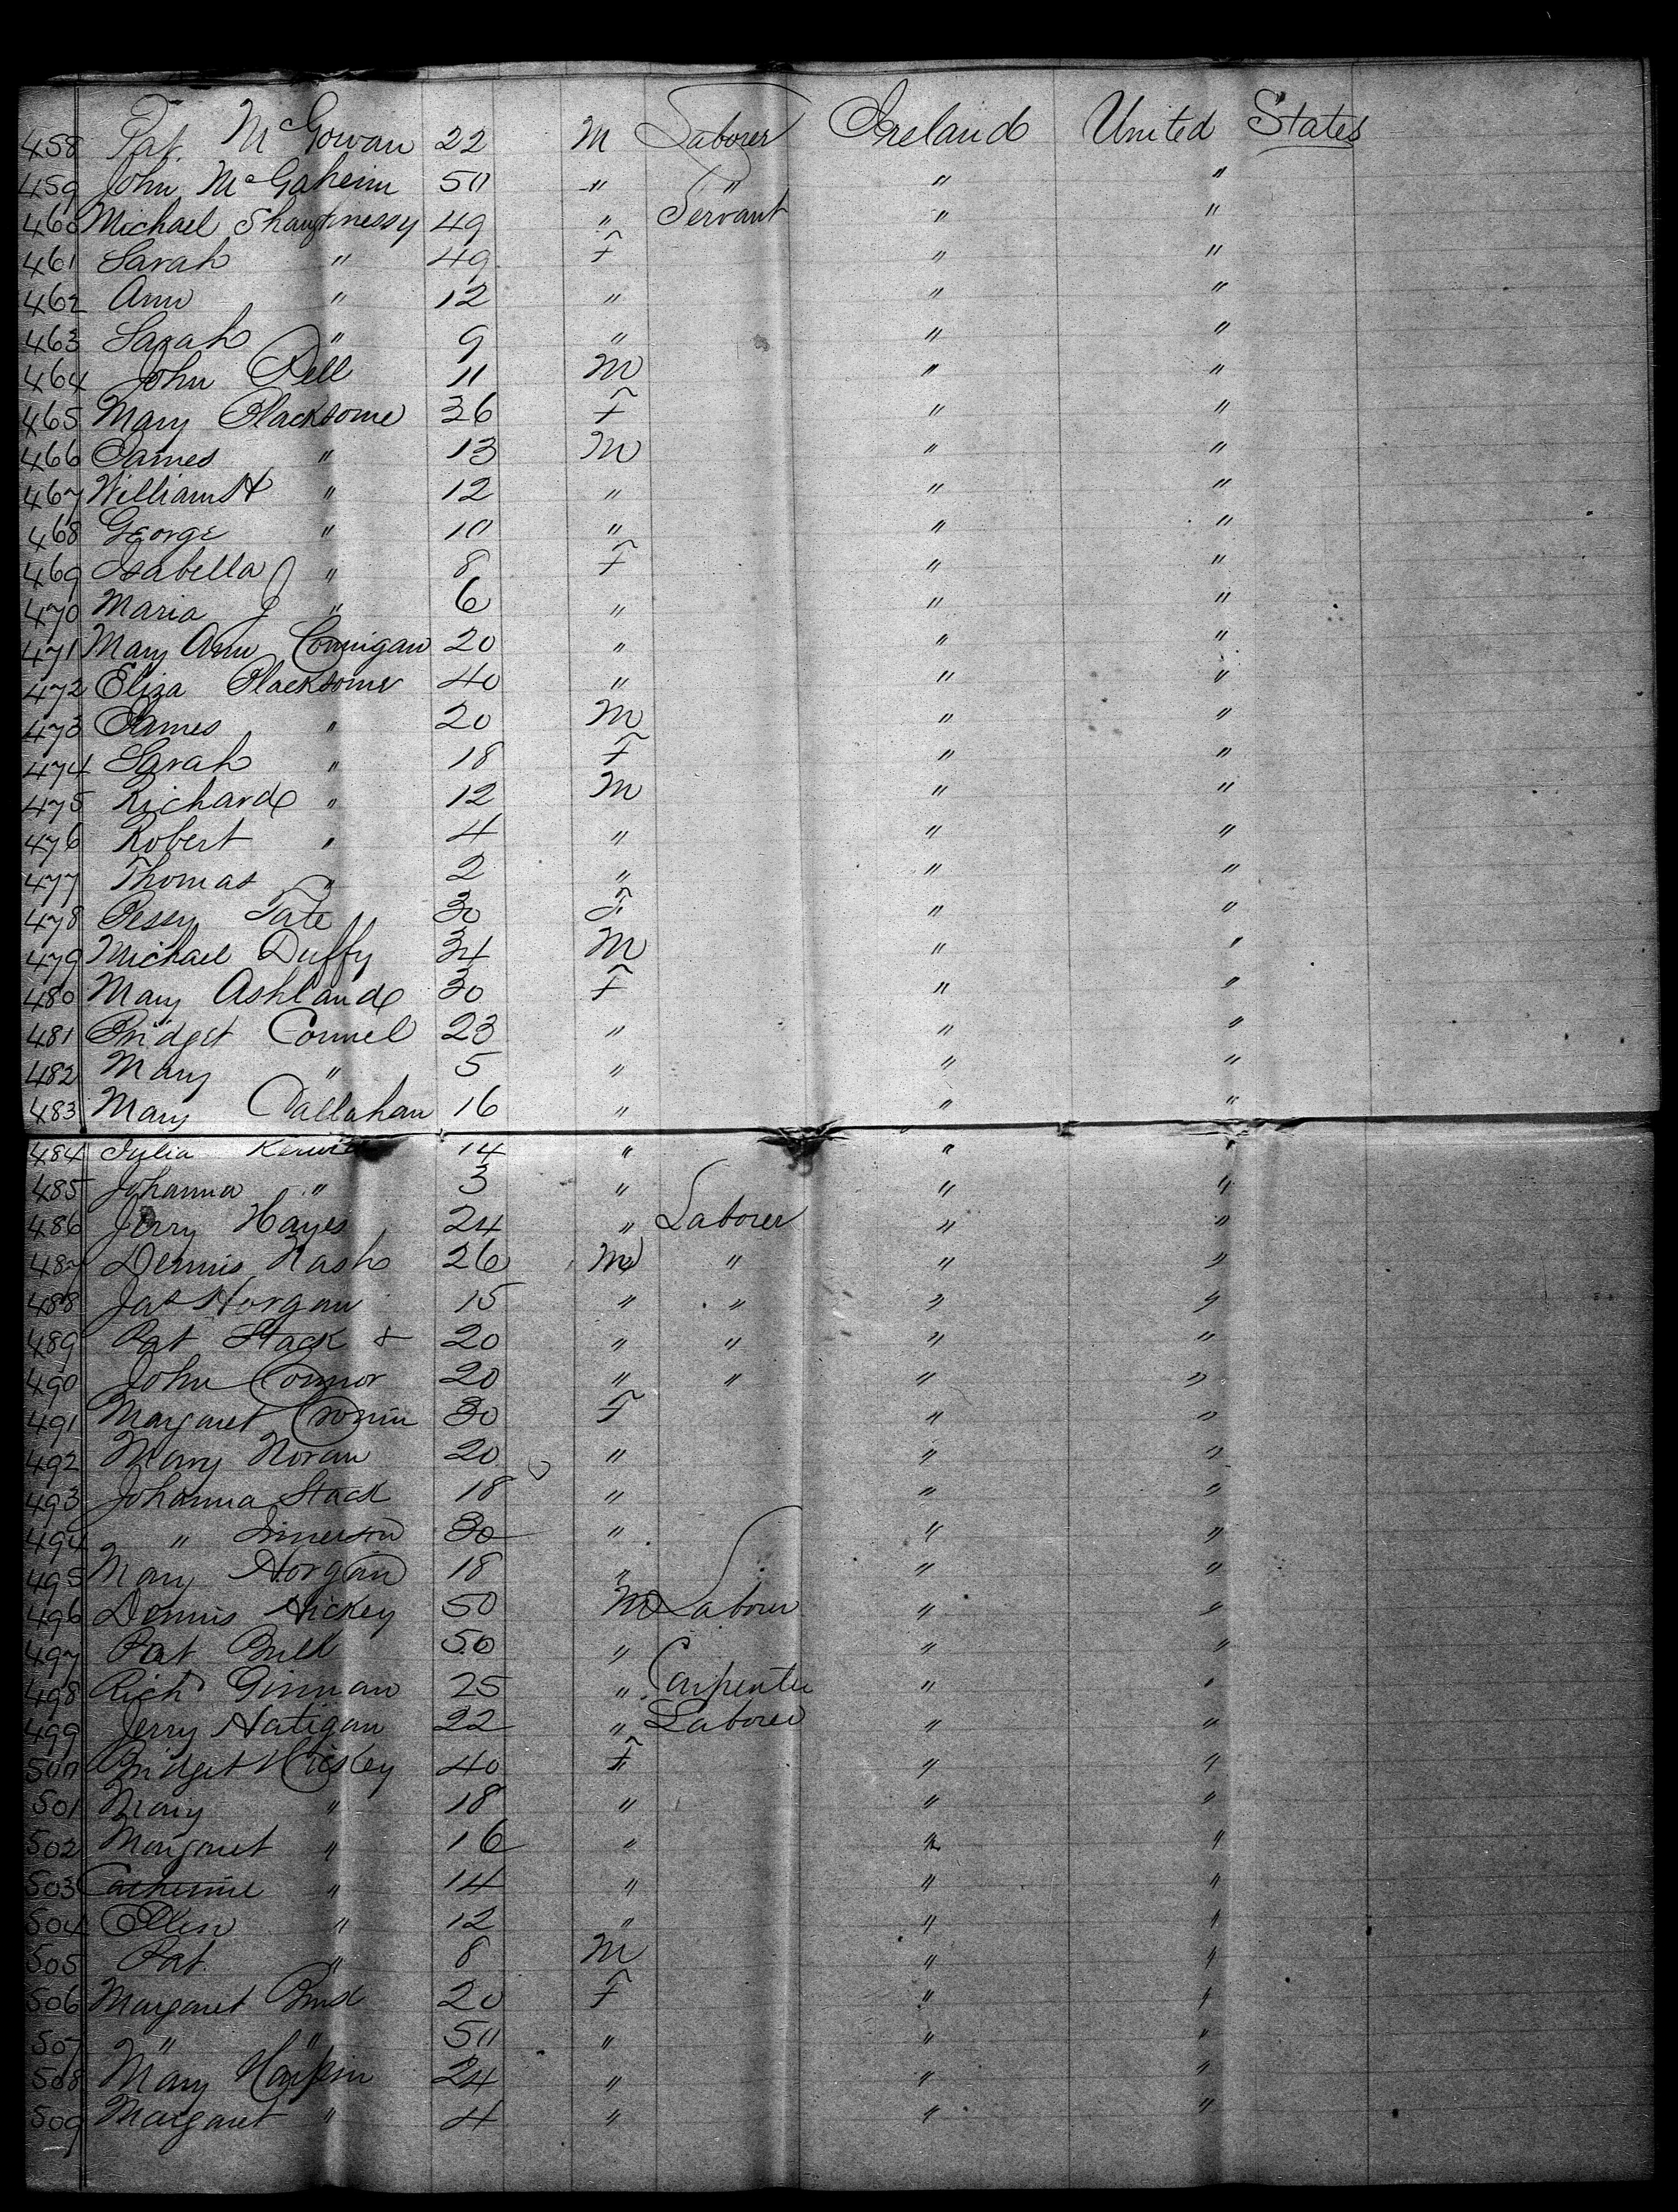 458 Pat. McGowan 22 M Laborer Ireland United States
459 John McGaheim 50 " " " "
460 Michael Shaughnessy 49 " Servant " "
461 Sarah " 49 F " "
462 Ann " 12 " " "
463 Sarah " 9 " " "
464 John Bell 11 M " "
465 Mary Blacksome 36 F " "
466 James " 13 M " "
467 William H " 12 " " "
468 George " 10 " " "
469 Isabella J " 8 F " "
470 Maria J " 6 " " "
471 Mary Ann Connigan 20 " " "
472 Eliza Blacksome 40 " " "
473 James " 20 M " "
474 Sarah " 18 F " "
475 Richard " 12 M " "
476 Robert " 4 " " "
477 Thomas " 2 " " "
478 Bessy Tate 30 F " "
479 Michael Duffy 34 M " "
480 Mary Ashland 30 F " "
481 Bridget Connel 23 " " "
482 Mary " 5 " " "
483 Mary Callahan 16 " " "
484 Julia 14 " " "
485 Johanna " 3 " " "
486 Jerry Hayes 24 " Laborer " "
487 Dennis Nash 26 M " " "
488 Jas Horgan 15 " " " "
489 Pat Stack + 20 " " " "
490 John Connor 20 " " " "
491 Margaret Cronin 30 F " "
492 Mary Noran 20 " " "
493 Johanna Stack 18 " " "
494 " 30 " " "
495 Mary Horgan 18 " " "
496 Dennis Hickey 50 M Laborer " "
497 Pat 50 " " "
498 Richd Ginnan 25 " Carpenter " "
499 Jerry Hatigan 22 " Laborer " "
500 Bridget Hickey 40 F " "
501 Mary " 18 " " "
502 Margaret " 16 " " "
503 Catherine " 14 " " "
504 Ellen " 12 " " "
505 Pat. " 8 M " "
506 Margaret 20 F " "
507 " " 50 " " "
508 Mary 24 " " "
509 Margaret " 4 " " "